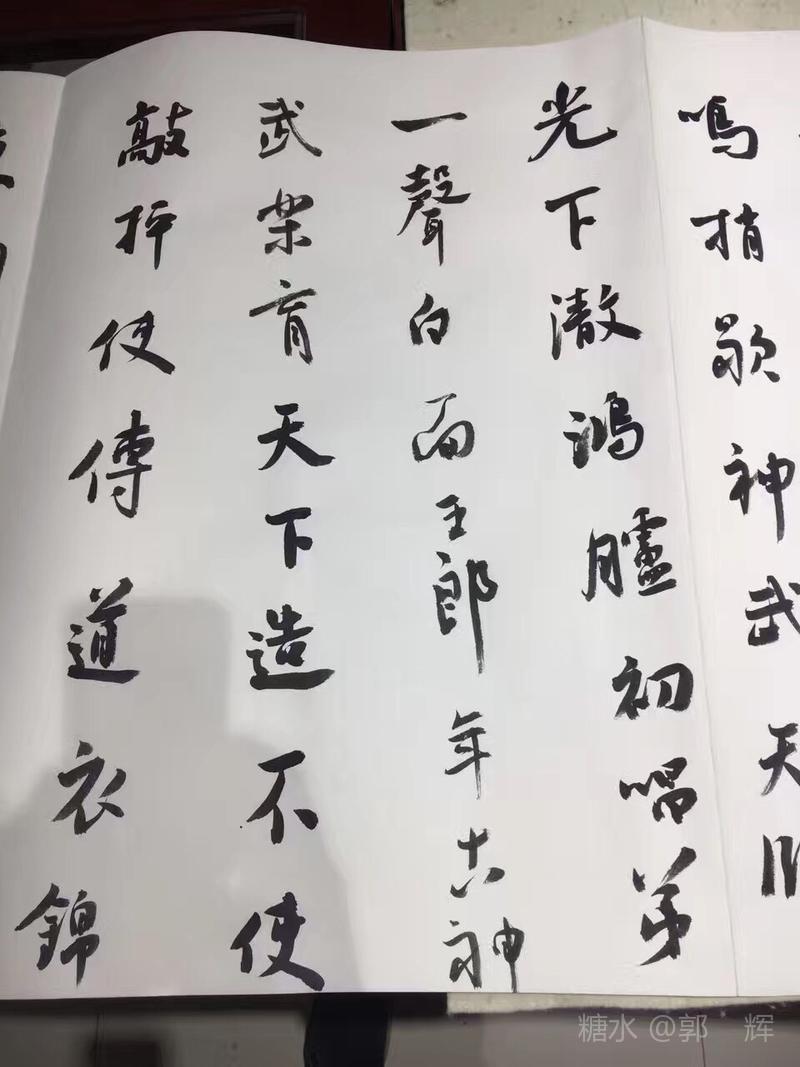 鳴捎歇神武天
光下澈鴻臚初唱第
一聲白面王郎年十八神
武樂育天下造不使
敲抨使傳道衣錦
糖水 @郭 辉